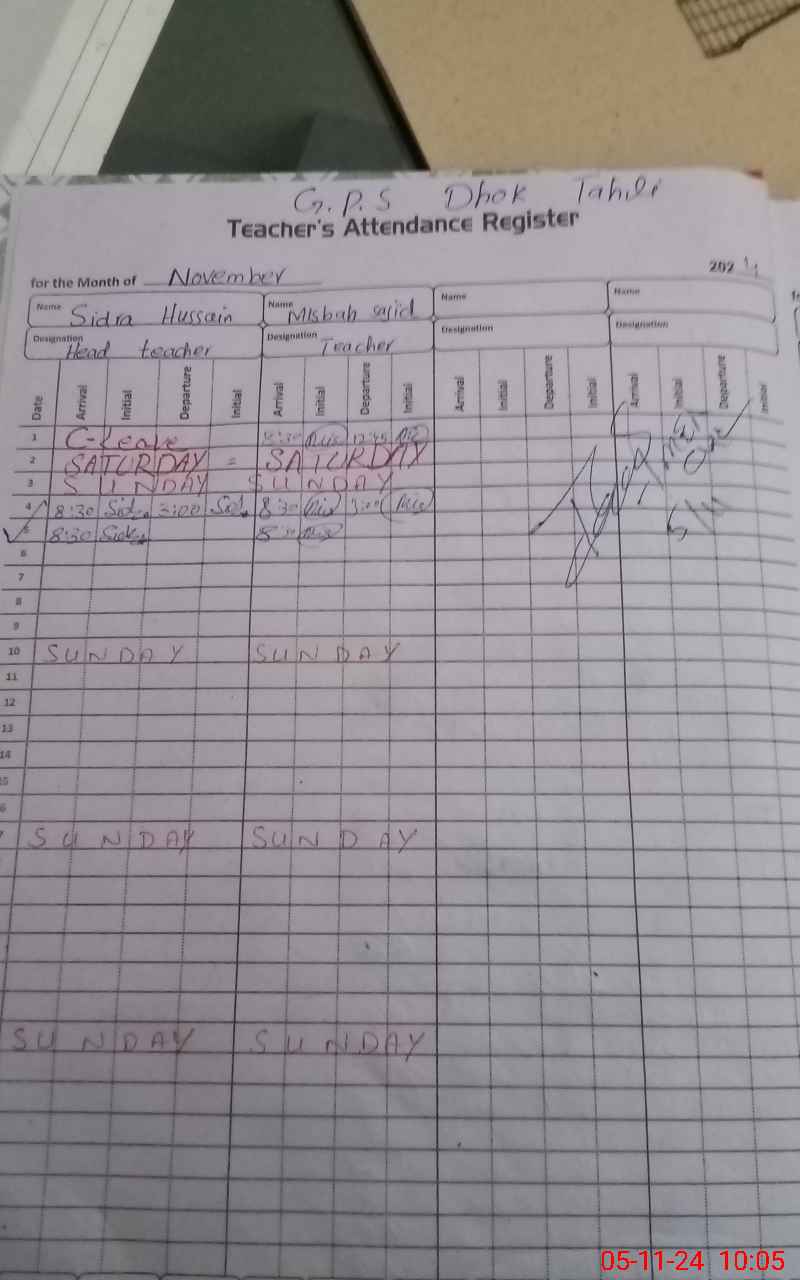 G.P.S Dhok Tahli
Teacher's Attendance Register
for the Month of November 2024
Name Sidra Hussain Name Misbah sajid Name Name
Designation Head teacher Designation Teacher Designation Designation
Date Arrival Initial Departure Initial Arrival Initial Departure Initial Arrival Initial Departure Initial Arrival Initial Departure Initial
1 C-Leave 8:30
2 SATURDAY = SATURDAY
3 SUNDAY SUNDAY
4 8:30 3:00 8:30 3:00
5 8:30 8:30
6
7
8
9
10 SUNDAY SUNDAY
11
12
13
14
15
6
7 SUNDAY SUNDAY
SUNDAY SUNDAY
05-11-24 10:05